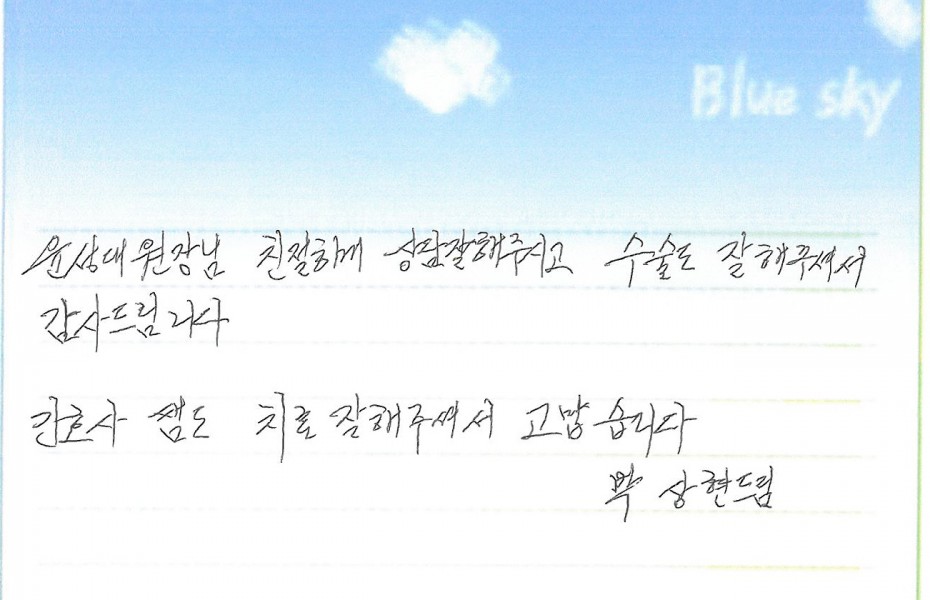 Blue sky
윤상대 원장님 친절하게 상담잘해주시고 수술도 잘해주셔서
감사드립니다
간호사 쌤도 치료 잘해주셔서 고맙습니다
박 상현드림